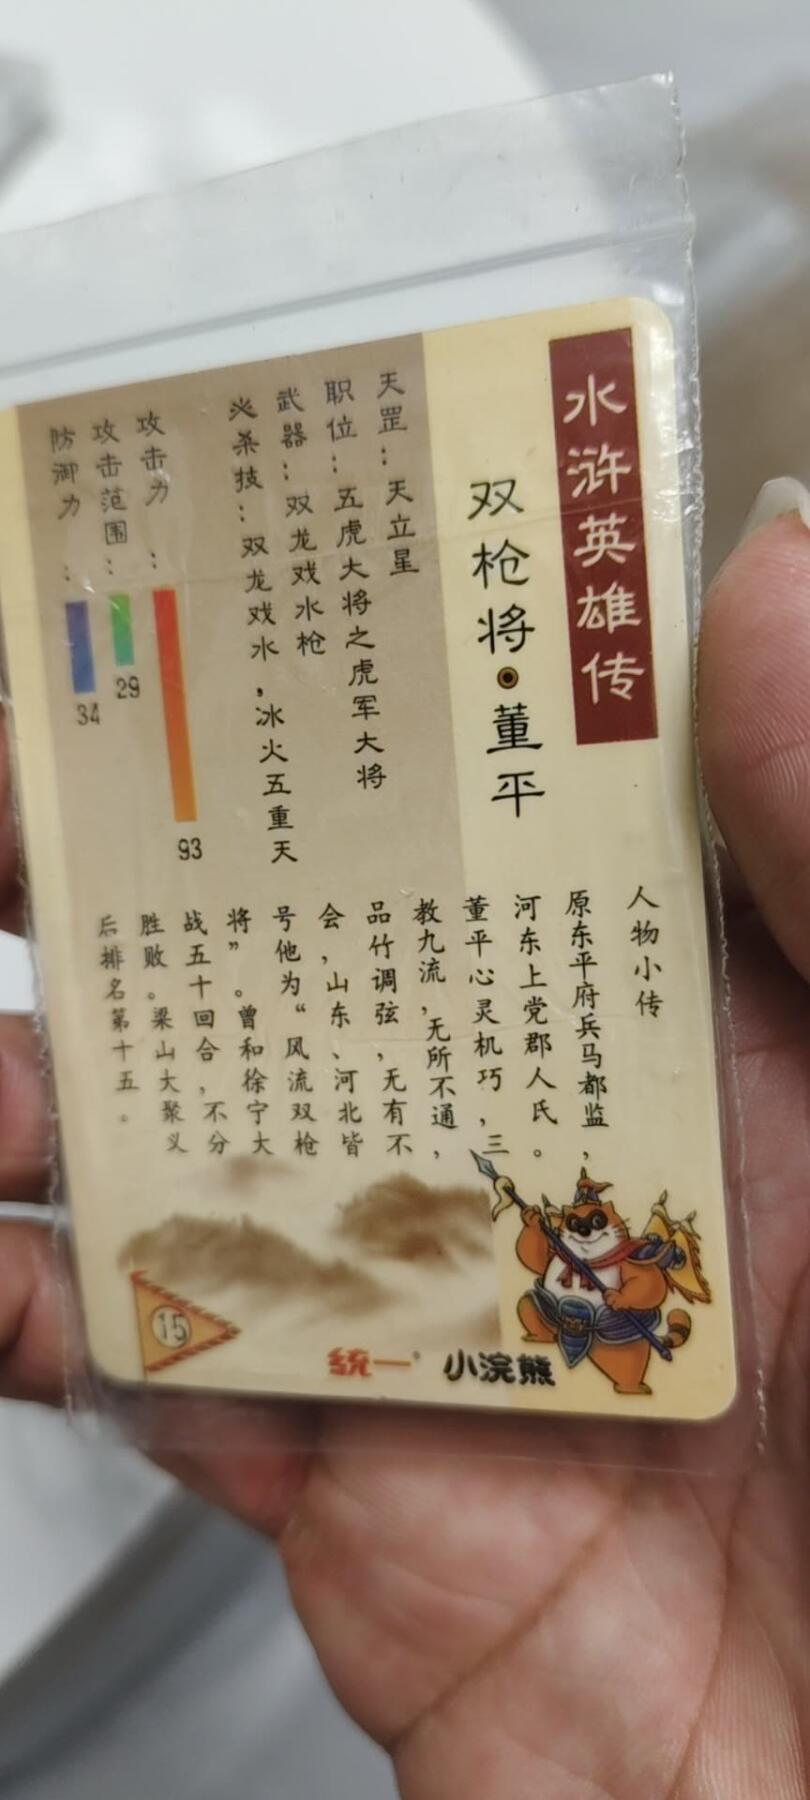 水浒英雄传
双枪将·董平
天罡：天立星
职位：五虎大将之虎军大将
武器：双龙戏水枪
必杀技：双龙戏水，冰火五重天
攻击力：93
攻击范围：29
防御力：34
人物小传
原东平府兵马都监，
河东上党郡人氏。
董平心灵机巧，三
教九流，无所不通，
品竹调弦，无有不
会，山东、河北皆
号他为“风流双枪
将”。曾和徐宁大
战五十回合，不分
胜败。梁山大聚义
后排名第十五。
15
统一 小浣熊